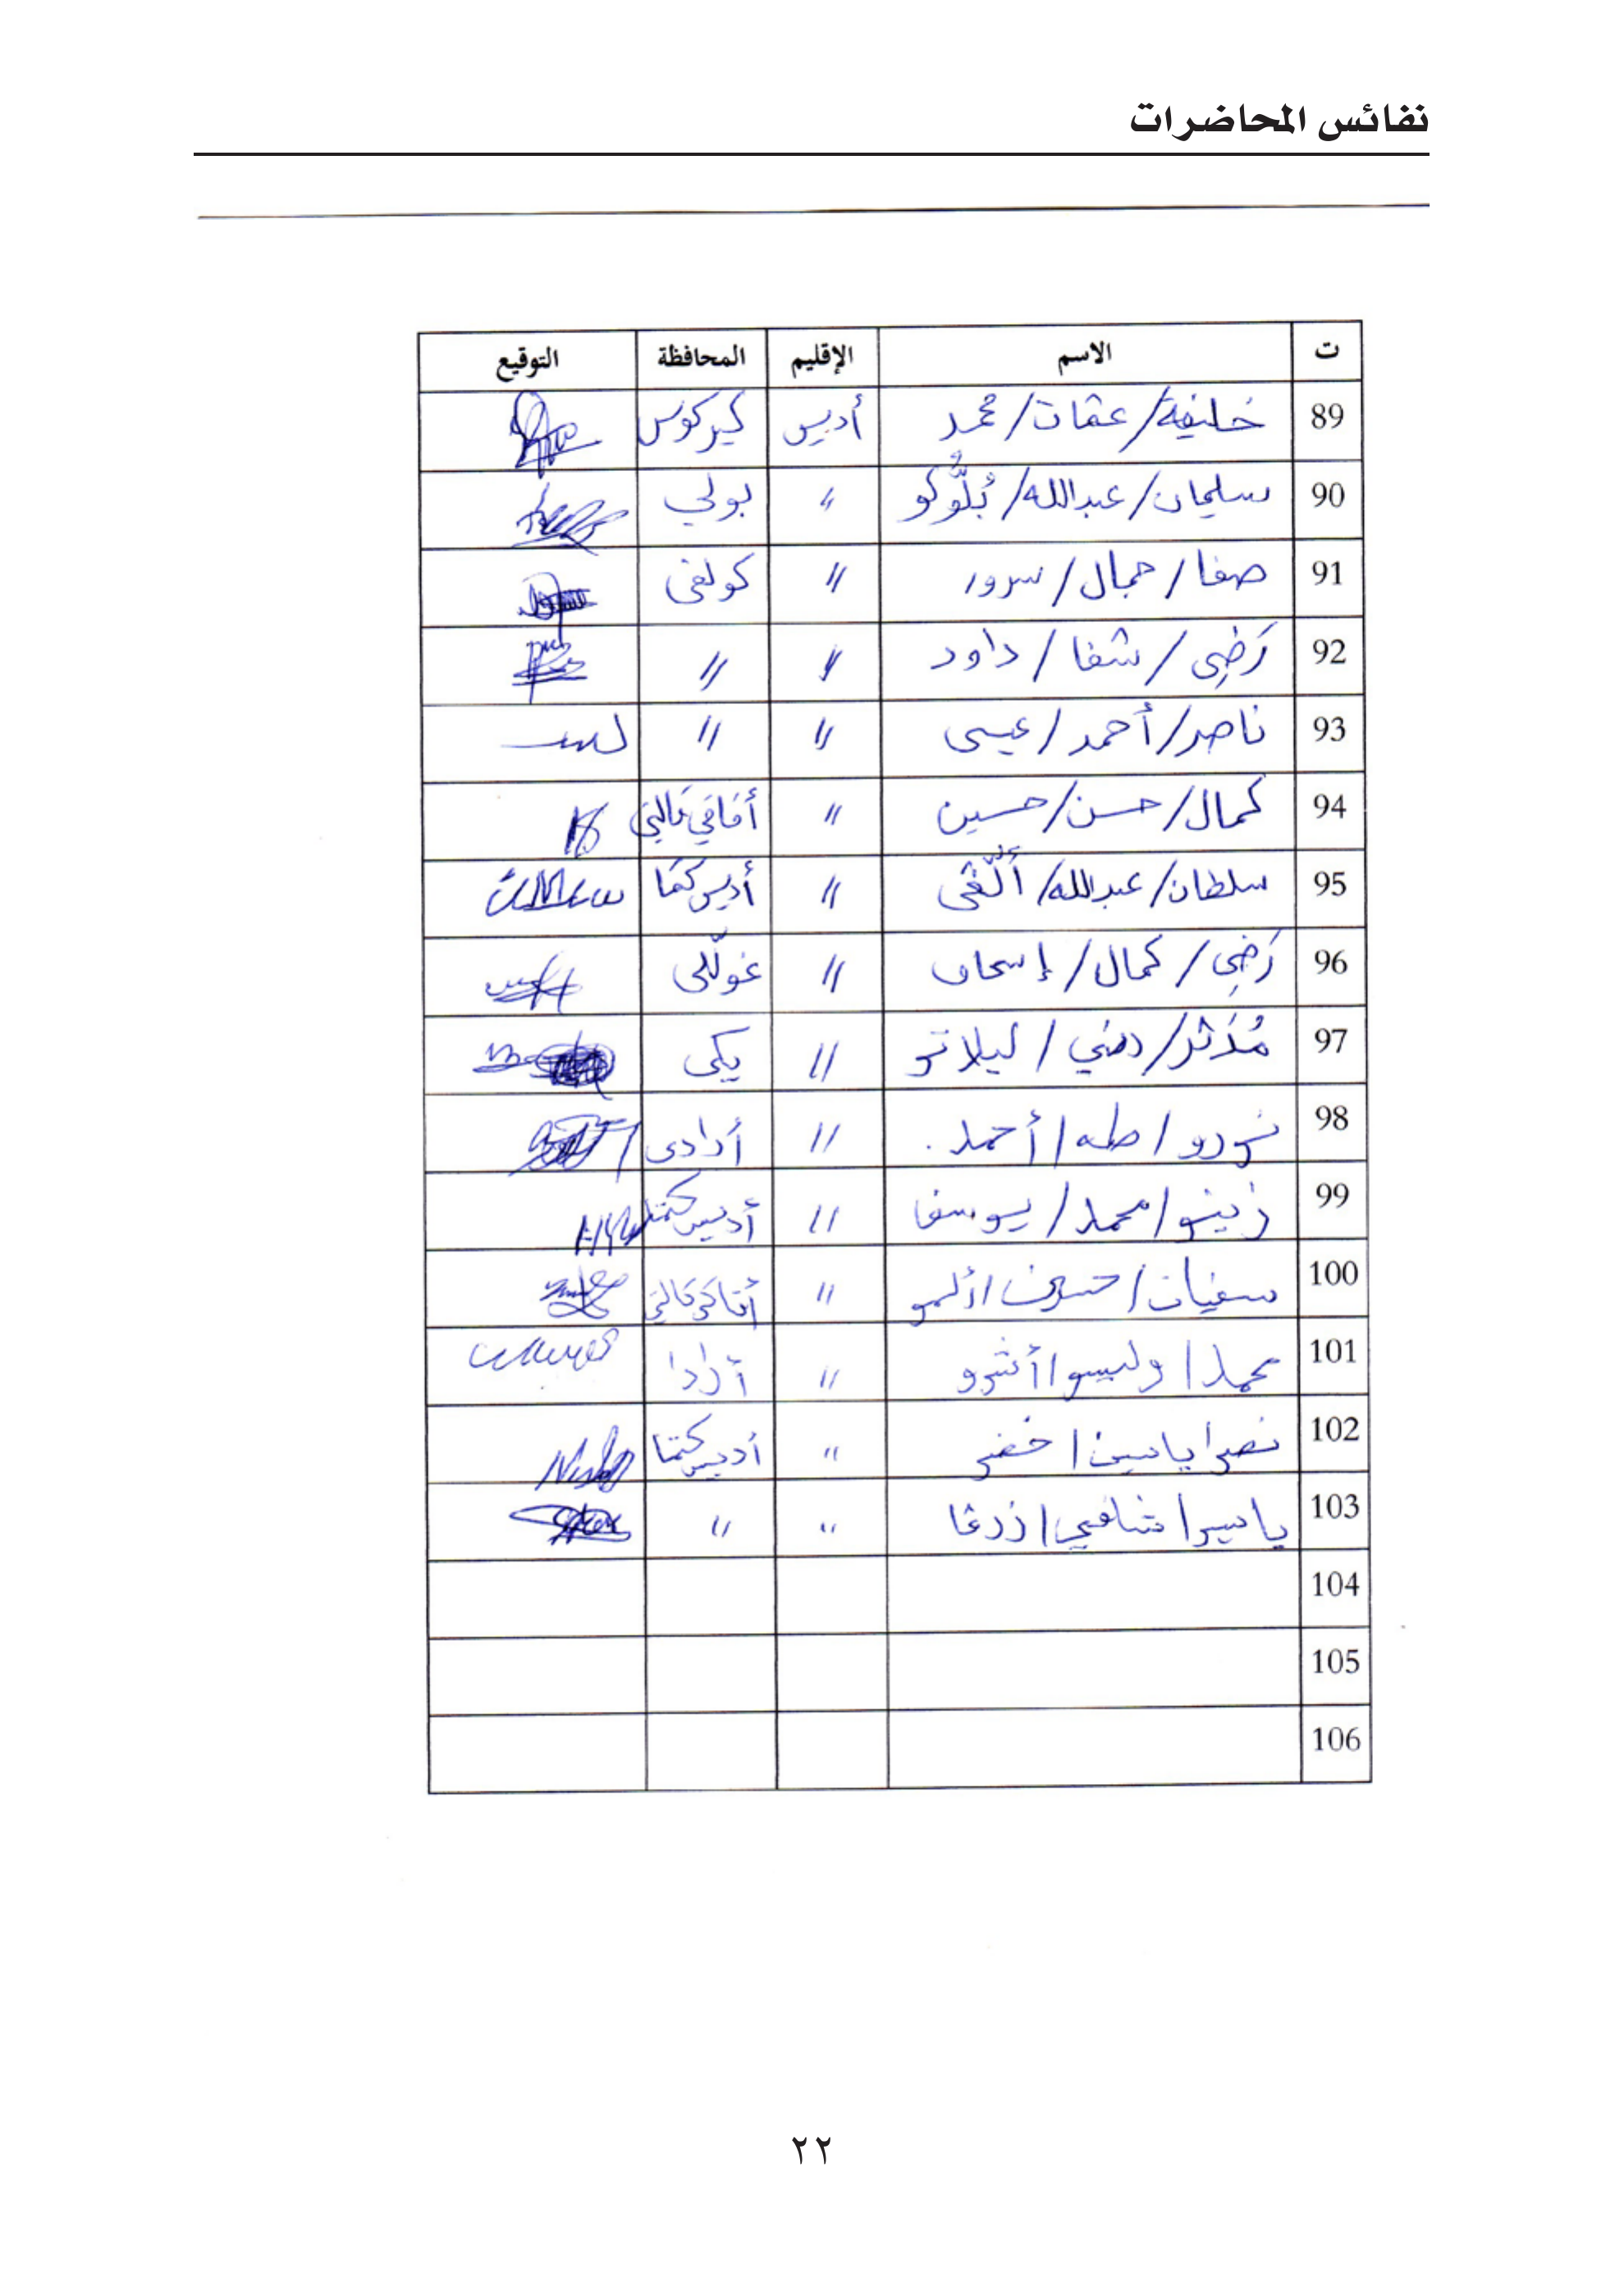 نفائس المحاضرات
ت الاسم الإقليم المحافظة التوقيع
89 خليفة/عثمان/محمد أديس كيركوس
90 سليمان/عبدالله/بُلُّوكو 〃 بولي
91 صفا/جمال/سرور 〃 كولفى
92 رَضِى/شفا/داود 〃 〃
93 ناصر/أحمد/عيسى 〃 〃
94 كمال/حسن/حسين 〃
95 سلطان/عبدالله/ 〃 أديس كتما
96 رَضِى/كمال/إسحاق 〃 غولّلى
97 مُدَثر/ /ليلاتو 〃 يكى
98 نورو/طه/أحمد. 〃 أرادى
99 زينو/محمد/يوسف 〃 أديس كتما
100 سفيان/حسين/ 〃
101 محمد/وليسو/ 〃 أرادا
102 نصر/ياسين/خضر 〃 أديس كتما
103 ياسر/شافي/زرغا 〃 〃
104
105
106
٢٢